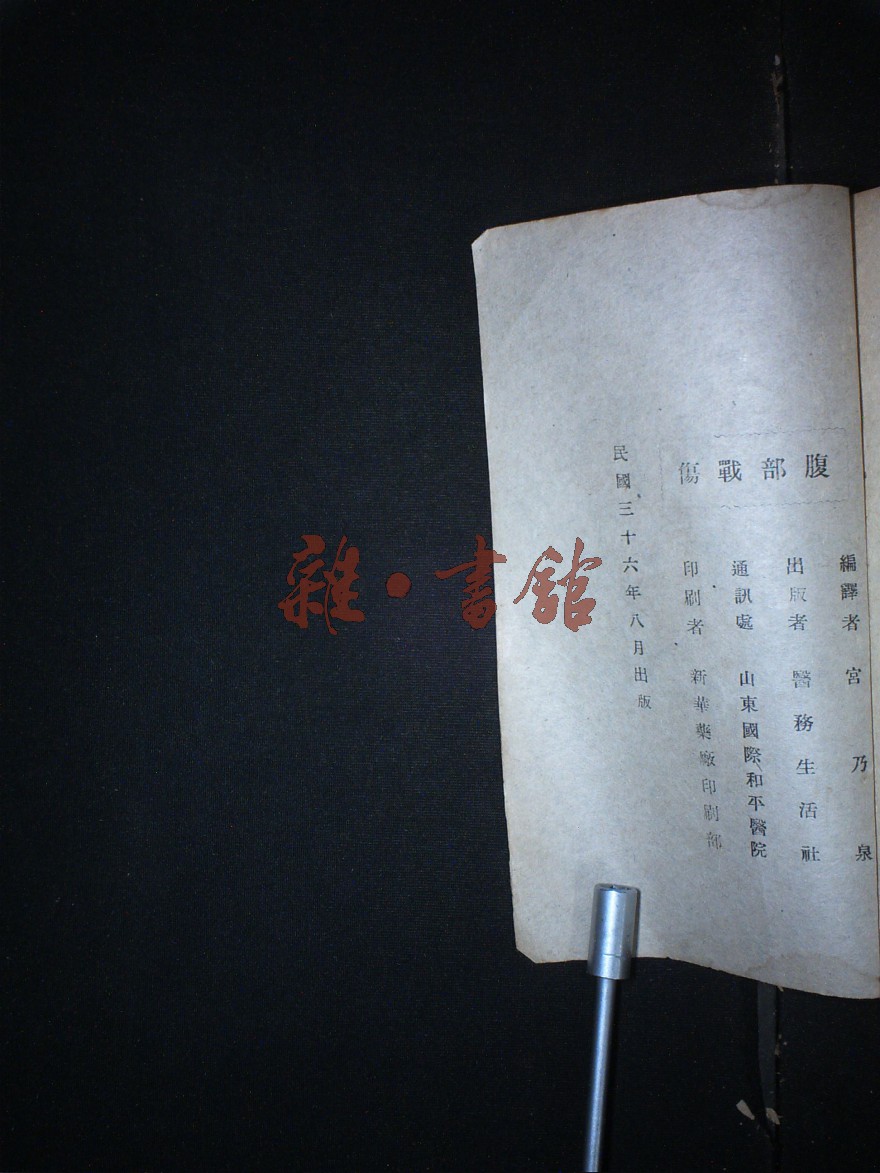 腹部戰傷
編譯者 宮乃泉
出版者 醫務生活社
通訊處 山東國際和平醫院
印刷者 新華藥廠印刷部
民國三十六年八月出版
雜·書館